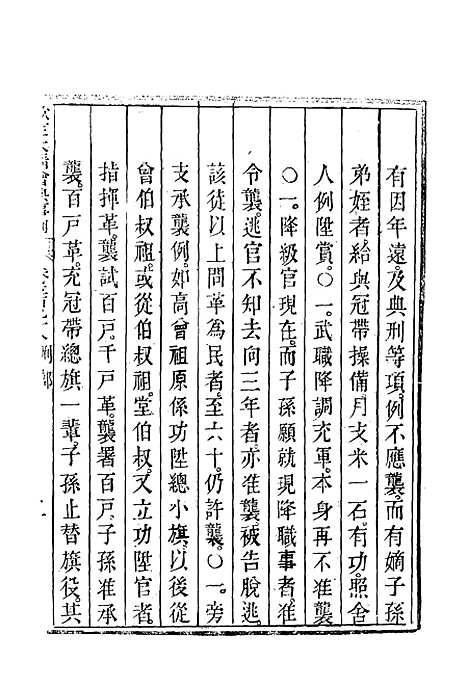 有因年遠。及典刑等項。例不應襲。而有嫡子孫
弟姪者給與冠帶操備月支米一石。有功。照舍
人例陞賞。〇一。武職降調充軍。本身再不准襲
〇一。降級官現在。而子孫願就現降職事者。准
令襲。逃官不知去向三年者亦准襲。被告脫逃。
該徒以上問革為民者。至六十。仍許襲。〇一。旁
支承襲例。如高曾祖原係功陞總小旗。以後從
曾伯叔祖。或從伯叔祖。堂伯叔。又立功陞官者。
指揮革。襲試百戸。千戸革。襲署百戸。子孫准承
襲。百戸革。充冠帶總旗一輩。子孫止替旗役。其